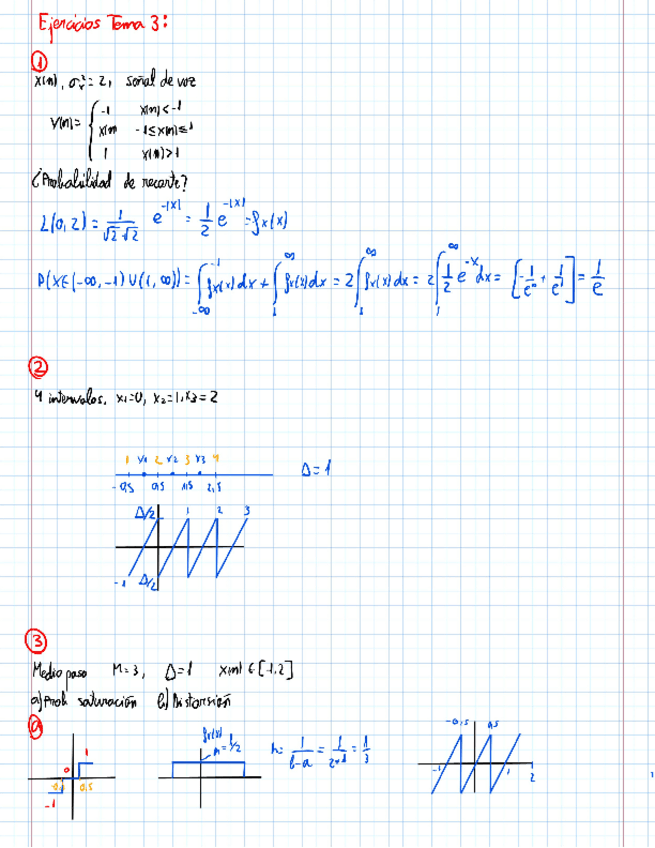 Ejercicios Tema 3:
①
x(n), σx² = 2, señal de voz
y(n) = { -1 x(n) < -1
x(n) -1 ≤ x(n) ≤ 1
1 x(n) > 1
¿Probabilidad de recorte?
L(0,2) = 1/(√2·√2) e^(-|x|) = 1/2 e^(-|x|) = fx(x)
P(X∈(-∞,-1)∪(1,∞)) = ∫_{-∞}^{-1} fx(x)dx + ∫_1^∞ fx(x)dx = 2∫_1^∞ fx(x)dx = 2∫_1^∞ 1/2 e^(-x)dx = [-1/e^∞ + 1/e^1] = 1/e
②
4 intervalos, x1=0, x2=1, x3=2
1 x1 2 x2 3 x3 4
-0,5 0,5 1,5 2,5
Δ=1
Δ/2 1 2 3
-1 Δ/2
③
Medio paso M=3, Δ=1 x(n) ∈ [-1,2]
a) Prob saturación b) Distorsión
a)
1
0
0,5
-1
fx(x)
h = 1/(b-a) = 1/(2+1) = 1/3
-0,5 0,5
-1 1 2